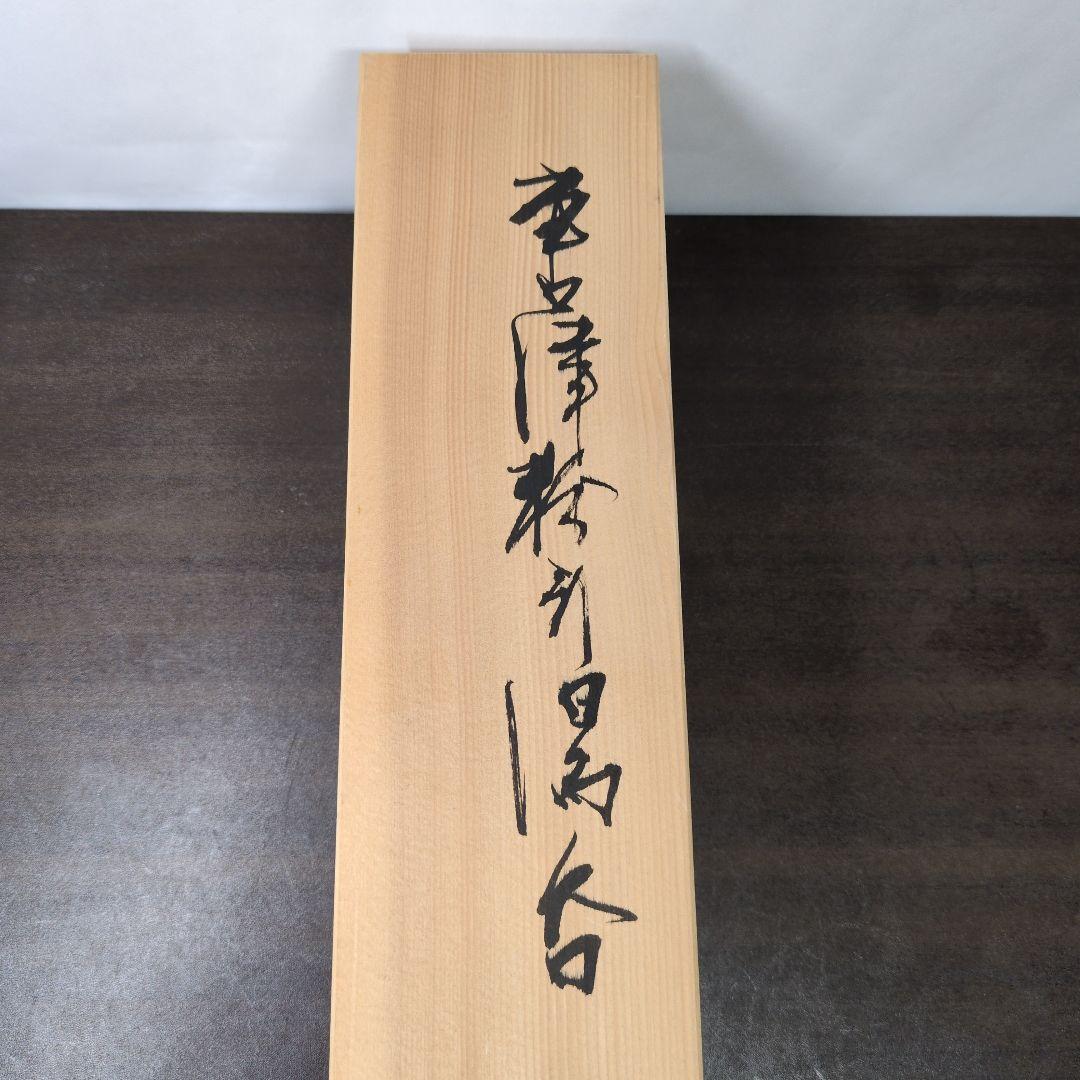 唐津粉引湯呑